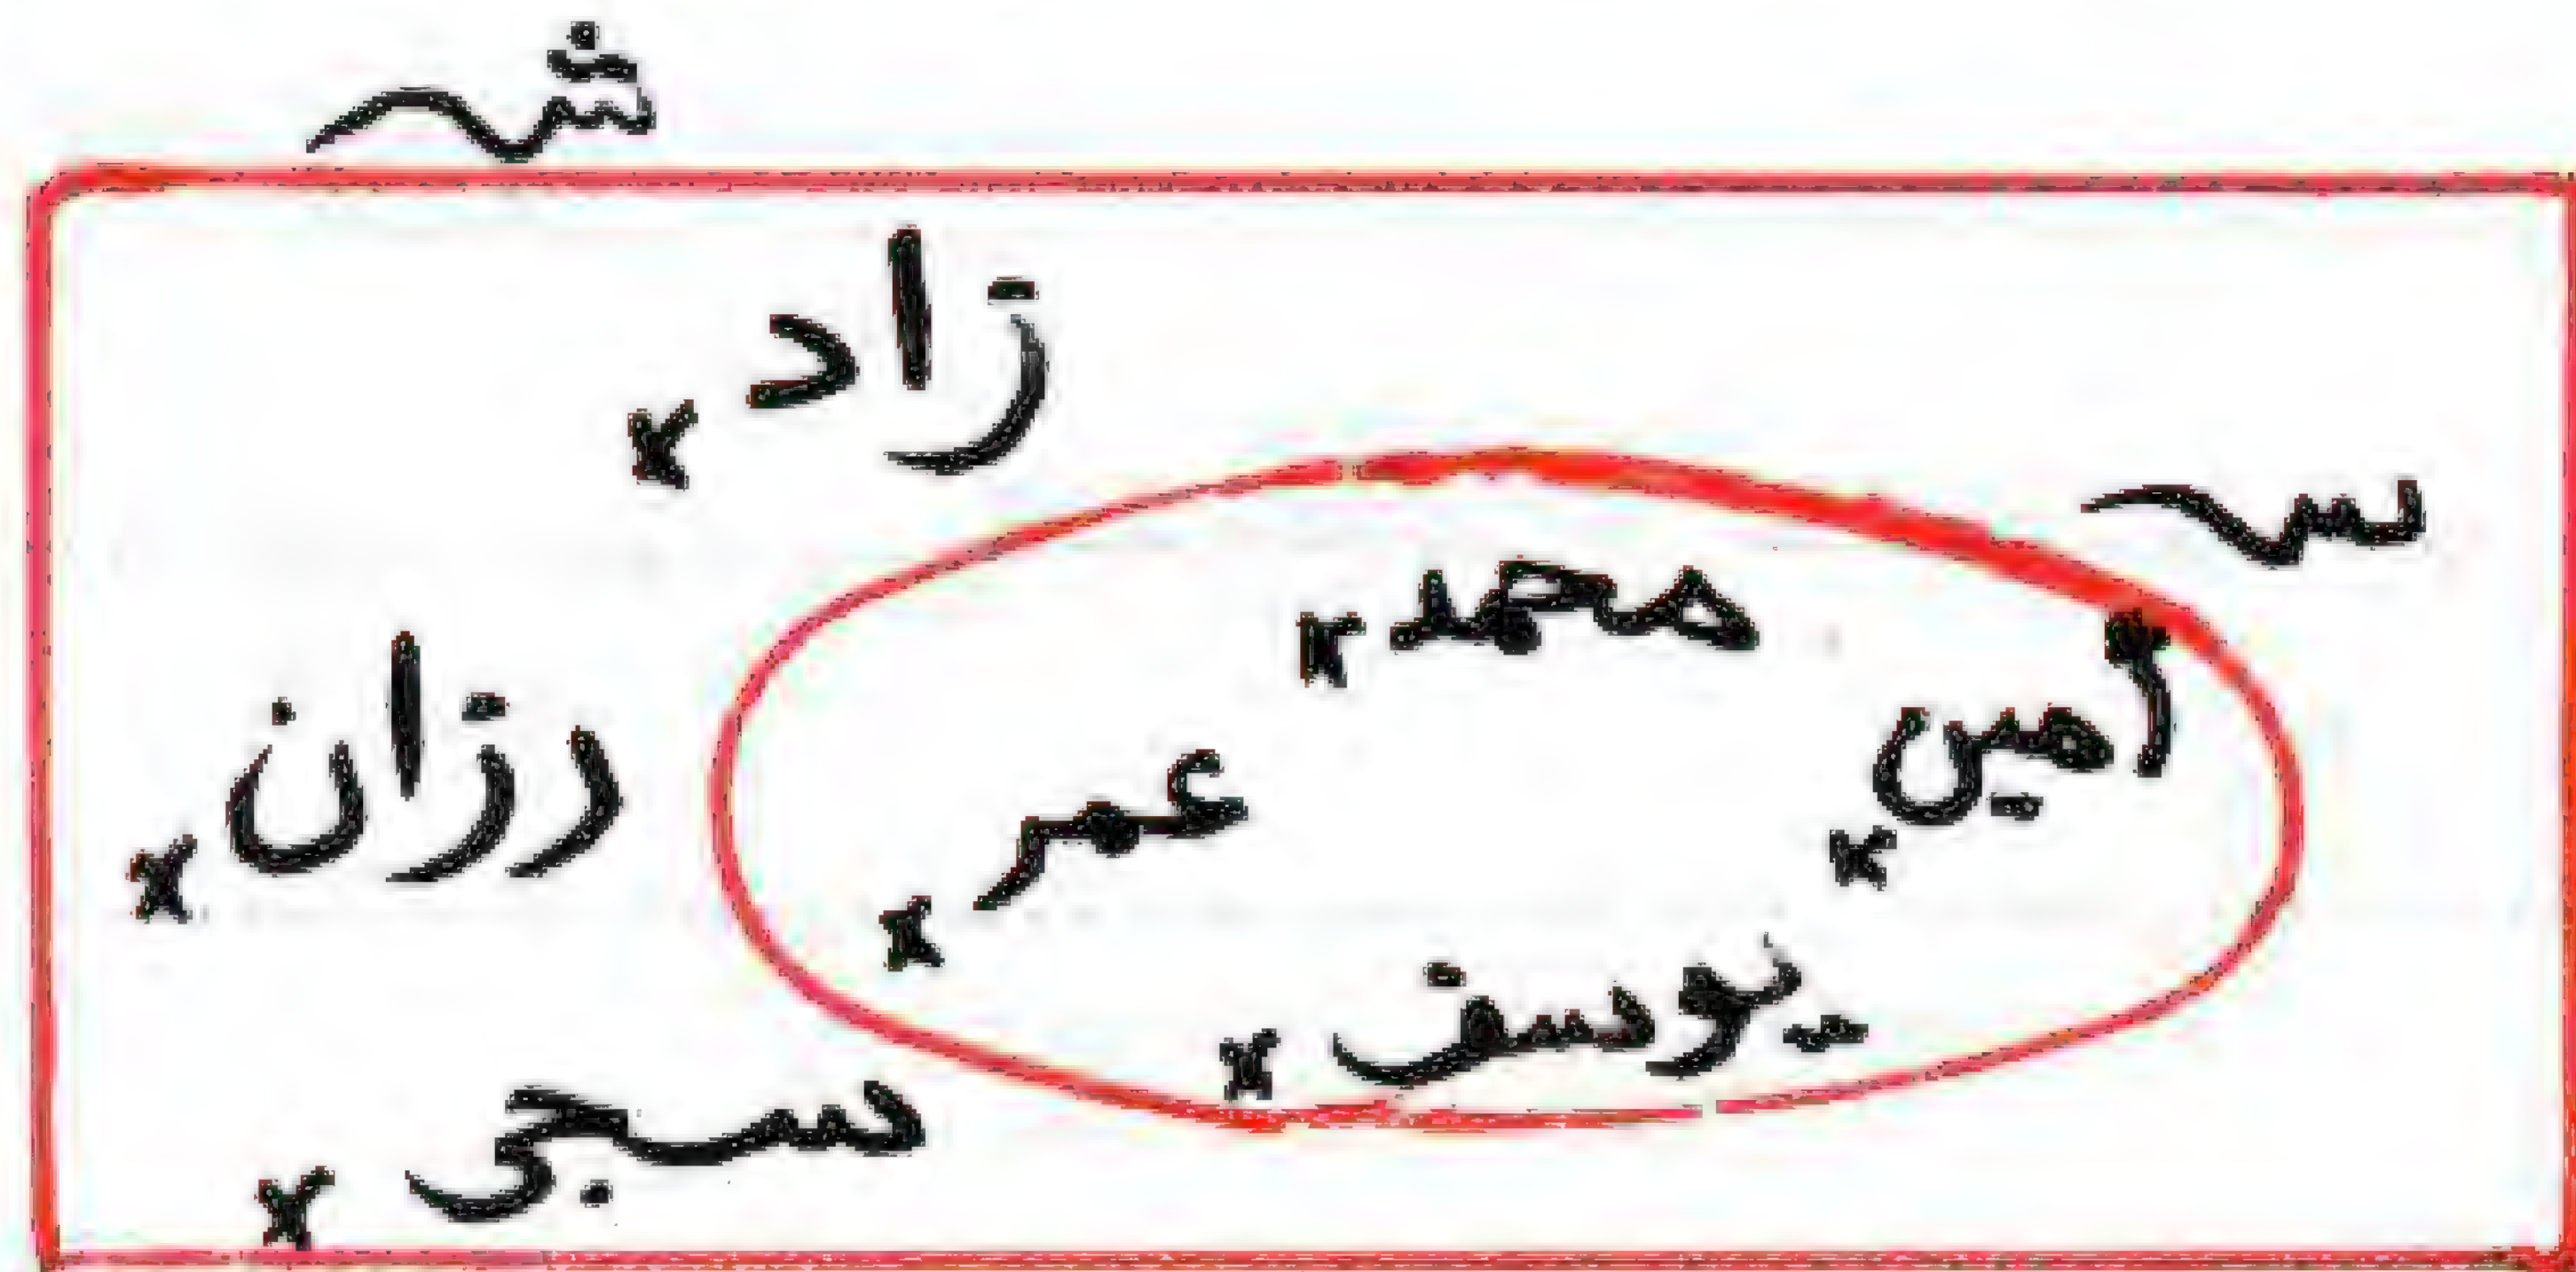 شـ
زاد ×
سـ
محمد ×
أمين ×
رزان ×
عمر ×
يوسف ×
سجى ×